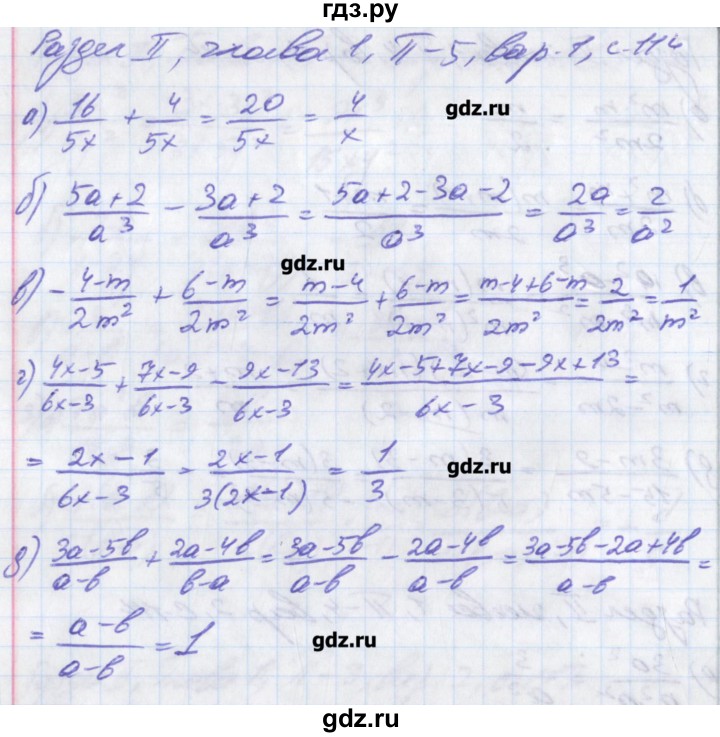 гдз.ру
Раздел II, глава 1, П-5, вар. 1, с. 114
а) 16/5x + 4/5x = 20/5x = 4/x
gdz.ru
б) (5a+2)/a³ - (3a+2)/a³ = (5a+2-3a-2)/a³ = 2a/a³ = 2/a²
gdz.ru
в) -(4-m)/2m² + (6-m)/2m² = (m-4)/2m² + (6-m)/2m² = (m-4+6-m)/2m² = 2/2m² = 1/m²
г) (4x-5)/(6x-3) + (7x-9)/(6x-3) - (9x-13)/(6x-3) = (4x-5+7x-9-9x+13)/(6x-3) =
= (2x-1)/(6x-3) = (2x-1)/3(2x-1) = 1/3
gdz.ru
д) (3a-5b)/(a-b) + (2a-4b)/(b-a) = (3a-5b)/(a-b) - (2a-4b)/(a-b) = (3a-5b-2a+4b)/(a-b) =
= (a-b)/(a-b) = 1
gdz.ru
gdz.ru